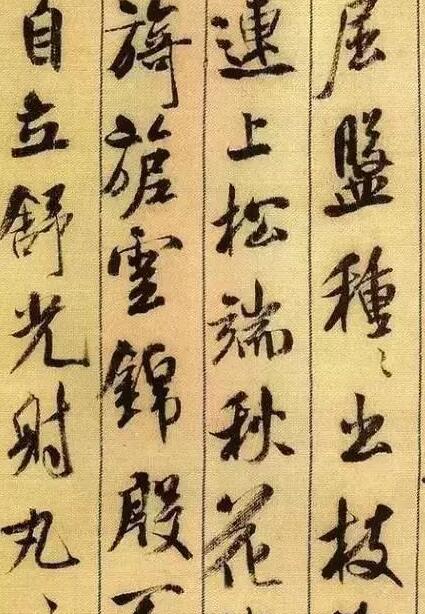 屈盤種〻出枝
連上松端秋花
旖旎雲錦殷不
自立舒光射丸〻